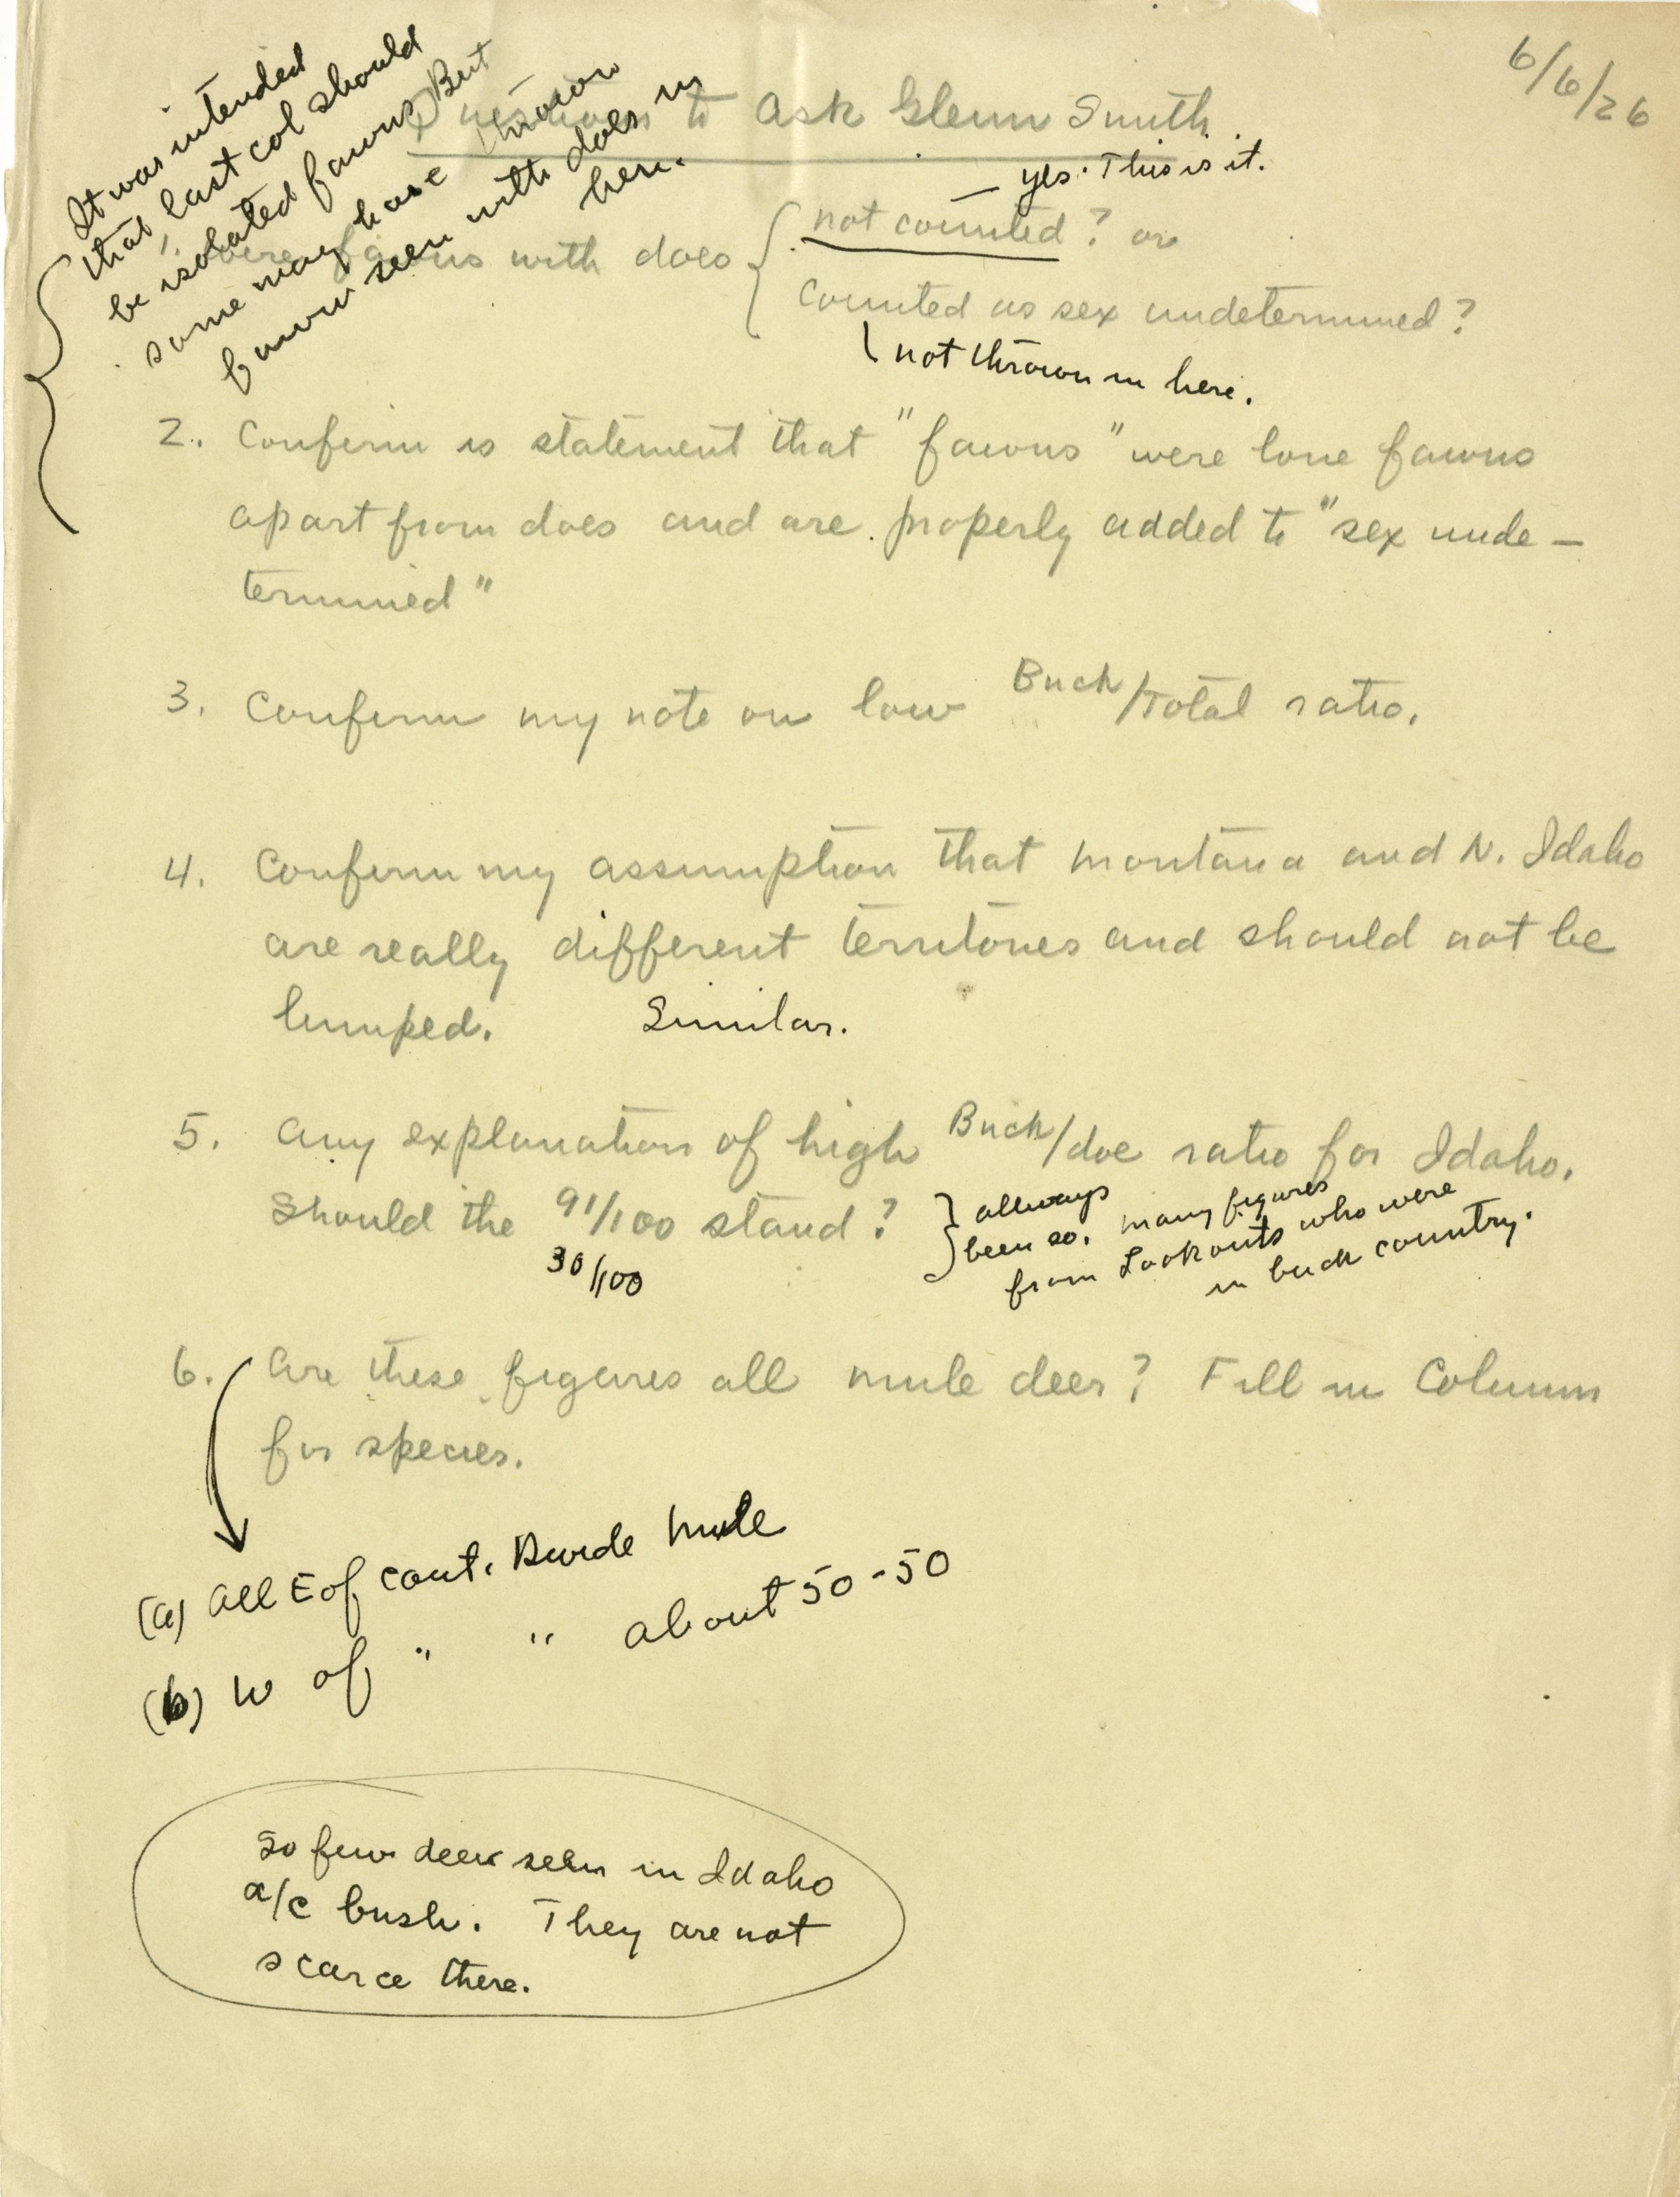 6/6/26
Questions to Ask Glenn Smith
It was intended
that last col should
be isolated fawns. But
some may have thrown
fawns seen with does in
here.
— yes. This is it.
1. Were fawns with does { not counted? or
counted as sex undetermined?
not thrown in here.
2. Confirm is statement that "fawns" were lone fawns
apart from does and are properly added to "sex unde-
termined"
3. Confirm my note on low Buck/Total ratio.
4. Confirm my assumption that Montana and N. Idaho
are really different territories and should not be
lumped. Similar.
5. Any explanation of high Buck/doe ratio for Idaho.
Should the 91/100 stand?
30/100
allways
been so. Many figures
from Lookouts who were
in buck country.
6. Are these figures all mule deer? Fill in Column
for species.
(a) All E of Cont. Divide Mule
(b) W of " " About 50-50
So few deer seen in Idaho
a/c bush. They are not
scarce there.